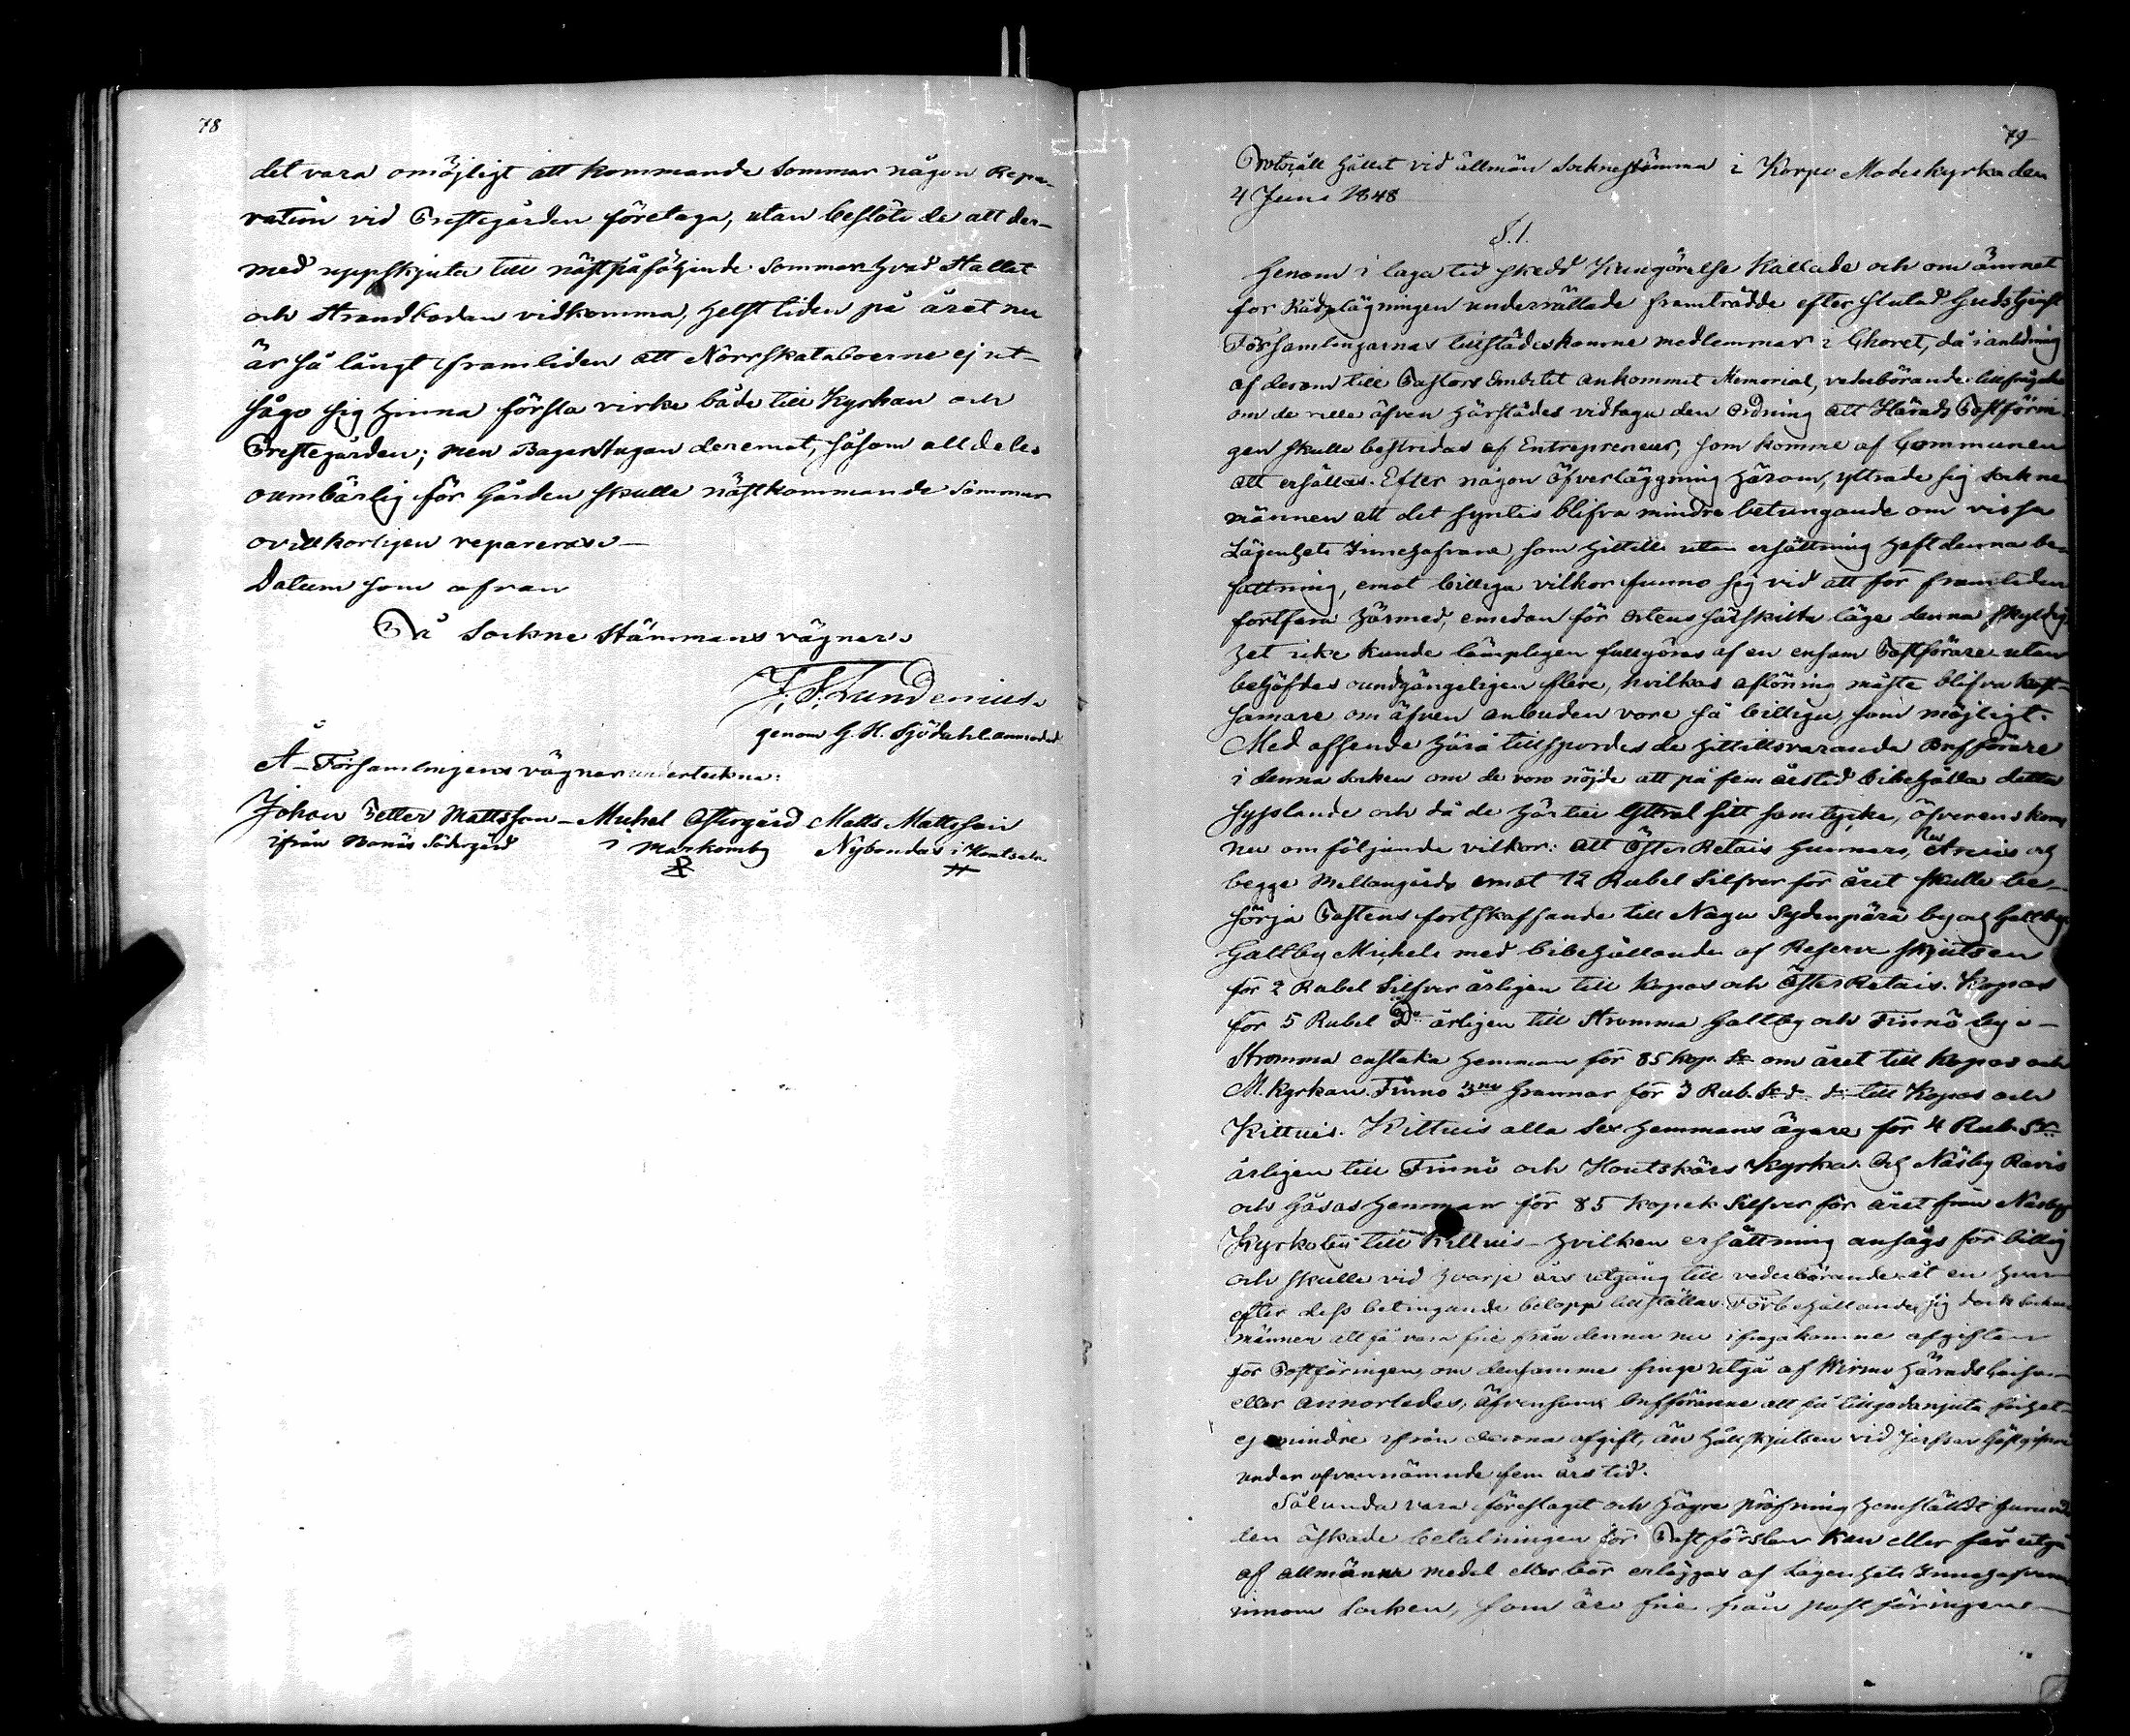 78
det vara omöjligt att kommande sommar någon Repa-
ration vid Prestegården företaga, utan beslöto de att der-
med uppskjuta till nästpåföljande sommar hvad Stallet
och Strandboden vidkomma, helst tiden på året nu
är så långt framliden att Norrskataboerne ej ut-
sågo sig hinna forsla virke både till Kyrkan och
Prestegården; men Bagarstugan deremot, såsom alldeles
oumbärlig för Gården skulle nästkommande sommar
ovillkorligen repareras.
Datum som ofvan
På Sockne Stämmans vägnar.
F. S. Lundenius.
genom G. H. Sjödahl
Å Församlingens vägnar underteckna:
Johan Petter Mattsson - Michel Östergård Matts Mattsson
ifrån Wonäs Södergård i Markomby Nybondas i
79
Protocoll hållet vid allmän Socknestämma i Korpo Moderkyrka den
4 Juni 1848
§.1.
Genom i laga tid skedd Kungörelse Kallade och om ämnet
for Rådplägningen underrättade framträdde efter slutad Gudstjenst
Församlingarnas tillstädeskomne medlemmar i Choret, då i anledning
af derom till Pastors Embetet ankommet Memorial, vederbörande tillfrågades
om de ville äfven härstädes vidtaga den ordning att Härads Postförin-
gen skulle bestridas af Entrepreneur, som komme af Communen
att ersättas. Efter någon Öfverläggning härom, yttrade sig sockne
männen att det syntes blifva mindre betungande om vissa
Lägenhets Innehafvare, som hittills utan ersättning haft denna be-
fattning, emot billiga vilkor funno sig vid att för framtiden
fortfara härmed, emedan för ortens särskilta läge denna skyldig-
het icke kunde lämpligen fullgöras af en ensam Postförare utan
behöfdes oundgängeligen flere, hvilkas aflöning måste blifva kost-
sammare om äfven anbuden vore så billiga, som möjligt.
Med afseende härå tillspordes de hittillsvarande Brefförare
i denna socken om de voro nöjde att på fem årstid bibehålla detta
sysslande och då de härtill yttrat sitt samtycke, öfverenskoms
nu om följande vilkor: att ÖsterRetais Gunnars, Anris och
begge Mellangårds emot 12 Rubel Silfver för året skulle be-
sörja Postens fortskaffande till Nagu Sydenpärä by och Galtby.
Galtby Michels med bibehållande af Reserv skjutsen
for 2 Rubel Silfver årligen till Kopas och ÖsterRetais. Kopas
för 5 Rubel Do årligen till Stromma Galtby och Finnö by.
Stromma enstaka Hemman för 85 Kop. Sr om året till Kopas och
M. Kyrkan. Finnö 3ne Grannar för 3 Rub. Sr d: d: till Kopas och
Kittuis. Kittuis alla sex Hemmans ägare för 4 Rub. Sr
årligen till Finnö och Houtskärs Kyrka. Och Näsby Ravis
och Gåsas Hemman för 85 Kopek Silfver för året från Näsby
Kyrkoby till Kittuis - hvilken ersättning ansågs för billig
och skulle vid hvarje års utgång till vederbörande åt en hvar
efter dess betingande belopp tillställas. Förbehållande sig dock sockne
männer att få vara frie från denna nu ifrågakomne afgiften
för Postföringen, om densamma finge utgå af Wirmo Härads
eller annorledes, äfvensom Brefförarene att få tillgodonjuta frihet
ej mindre ifrån denna afgift, än Hållskjutsen vid Jerfsor Gästgifveri
under ofvannämnde fem års tid.
Sålunda vara föreslaget och högre pröfning hemställdt huruvida
den äskade betalningen för Postförslen kan eller får utgå
af allmänna medel eller bör erläggas af Lägenhets Innehafvarne
inom Socken, som äro frie från postföringen